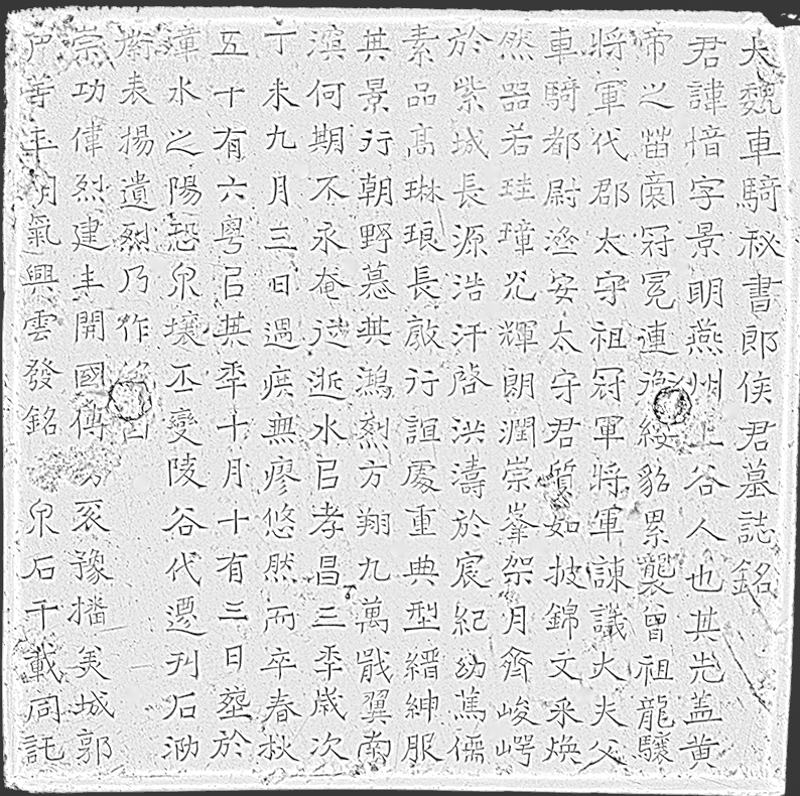 大魏車騎秘書郎侯君墓誌銘
君諱愔字景明燕州上谷人也其先蓋黃
帝之苗裔冠冕連濟綬貂累襲曾祖龍驤
將軍代郡太守祖冠軍將軍諫議大夫父
車騎都尉逕安太守君質如披錦文采煥
然器若珪璋光輝朗潤崇峯架月齊峻崿
於紫城長源浩汗啓洪濤於宸紀幼蔦儒
素品高琳琅長敞行誼處重典型縉紳服
其景行朝野慕其鴻烈方翔九萬戢翼南
溟何期不永奄從逝水㠯孝昌三秊歲次
丁未九月三日遇疾無瘳悠然而卒春秋
五十有六粵㠯其秊十月十有三日塟於
漳水之陽恐泉壤丕變陵谷代遷刊石泐
表揚遺烈乃作銘曰
崇功偉烈建丰開國傳豫播美城郭
氣興雲發銘泉石千載同託